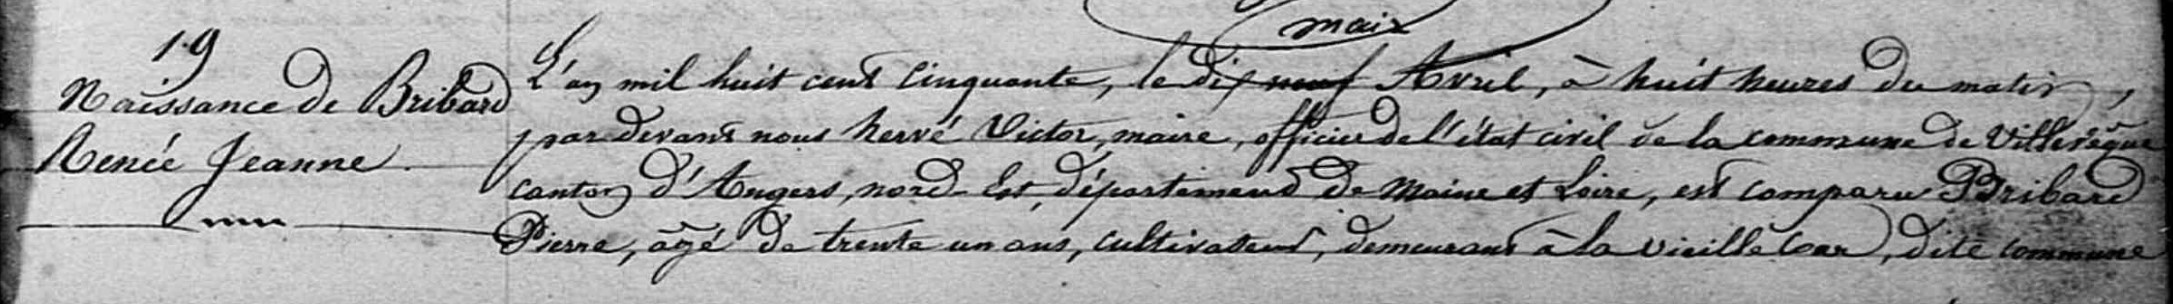 maire
19
Naissance de Bribard
Renée Jeanne
L'an mil huit cent cinquante, le dix neuf Avril, à huit heures du matin,
par devant nous hervé Victor, maire, officier de l'état civil de la commune de Villevêque
canton d'Angers, nord-Est, département de Maine et Loire, est comparu Bribard
Pierre, âgé de trente un ans, cultivateur, demeurant à la vieille Cour, dite commune